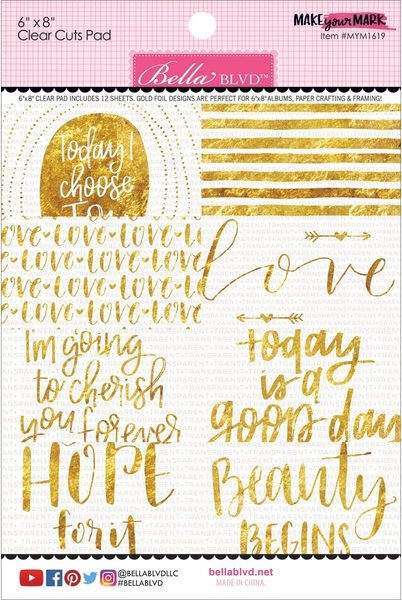 6" x 8"
Clear Cuts Pad
MAKE your MARK
Item #MYM1619
Bella BLVD™
6"x8" CLEAR PAD INCLUDES 12 SHEETS. GOLD FOIL DESIGNS ARE PERFECT FOR 6"x8" ALBUMS, PAPER CRAFTING & FRAMING!
Today I
choose
Joy
LOVE LOVE LOVE LO
LOVE LOVE LOVE L
LOVE LOVE LOVE LO
LOVE LOVE LOVE L
love
I'm going
to cherish
you forever
today
is a
good day
HOPE
for it
Beauty
BEGINS
TRANSPARENT
@BELLABLVDLLC
#BELLABLVD
bellablvd.net
MADE IN CHINA.